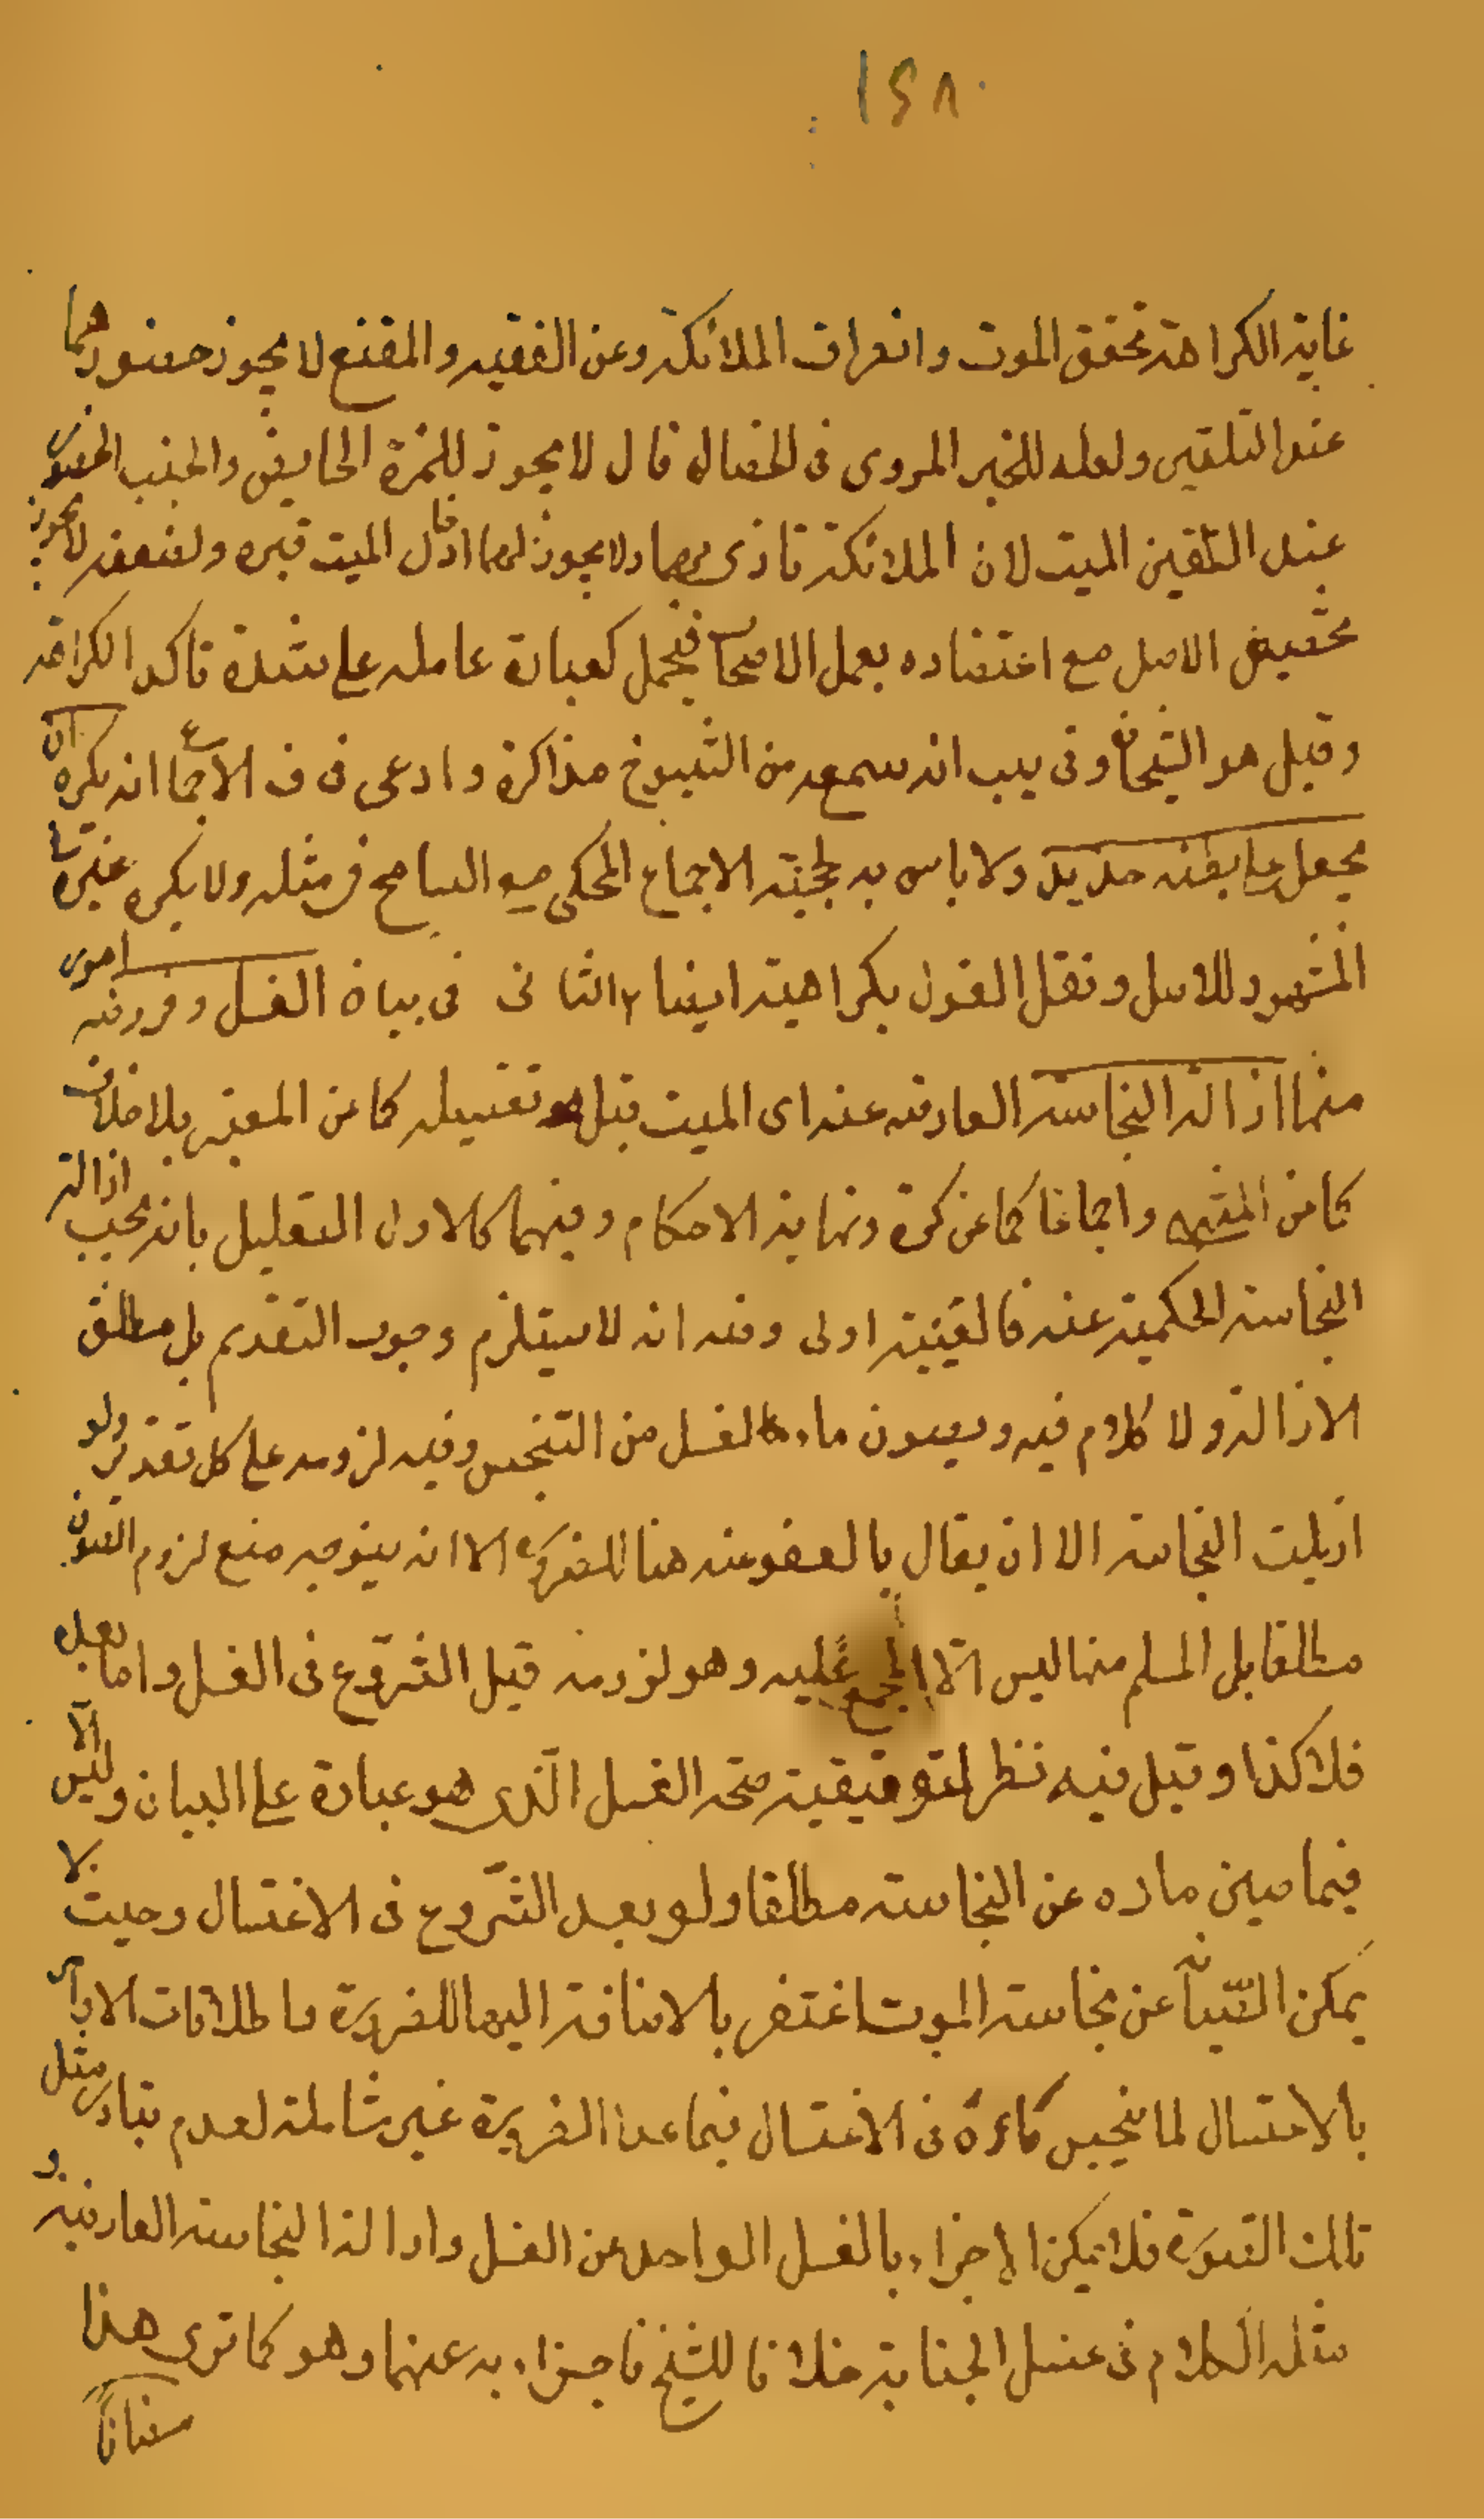 ١٤٨
غاية الكراهة تحقق الموت وانصراف الملائكة وعن الفقيه والمقنع لا يجوز حضورهما
عند التلقين ولعله للخبر المروى فى الخصال قال لا يجوز للمرة الحايض والجنب الحضور
عند التلقين الميت لان الملائكة تاذى بهما ولا يجوز لهما ادخال الميت قبره ولضعفه لا يجوز
تخصيص الاصل مع اعتضاده بعمل الاصحاب فيحمل كعبارة عامله على شدة تاكد الكراهة
وقيل هو الشيخان وفى يب انه سمعه من الشيوخ مذاكرة وادعى فى ف الاجماع انه يكره ان
يجعل على بطنه حديد ولا باس به لحجية الاجماع المحكى مع التسامح فى مثله ولا يكره غيره على
المشهور للاصل ونقل القول بكراهيته ايضا الثانى فى بيان الغسل وفروضه امور
منها ازالة النجاسة العارضة عنه اى الميت قبل تغسيله كما عن المعتبر بلا خلاف
كما عن المنتهى واجماعا كما عن كرة ونهاية الاحكام وفيهما كالاول التعليل بانه يجب ازالة
النجاسة الحكمية عنه فالعينية اولى وفيه انه لا يستلزم وجوب التقديم بل مطلق
الازالة ولا كلام فيه وبصون ماء الغسل من التنجس وفيه لزومه على كل تقدير ولو
ازيلت النجاسة الا ان يقال بالعفو عنه هنا للضرورة الا انه يتوجه منع لزوم الصون
مطلقا بل المسلم منها ليس الا المجمع عليه وهو لزومه قبل الشروع فى الغسل واما بعده
فلا كذا وقيل فيه نظر لتوقيفية صحة الغسل الذى هو عبادة على البيان وليس الا
فيما صين ماؤه عن النجاسة مطلقا ولو بعد الشروع فى الاغتسال وحيث لا
يمكن الصيانة عن نجاسة الموت اغتفر بالاضافة اليها للضرورة واطلاقات الاوامر
بالاغتسال لما ينجس ماؤه فى الاغتسال فيما عدا الضرورة غير شاملة لعدم تبادر مثل
تلك الصورة فلا يمكن الاجزاء بالغسل الواحد عن الغسل وازالة النجاسة العارضية و
مثله الكلام فى غسل الجنابة خلافا للشيخ فاجتزاء به عنهما وهو كما ترى هذا
مضافاً